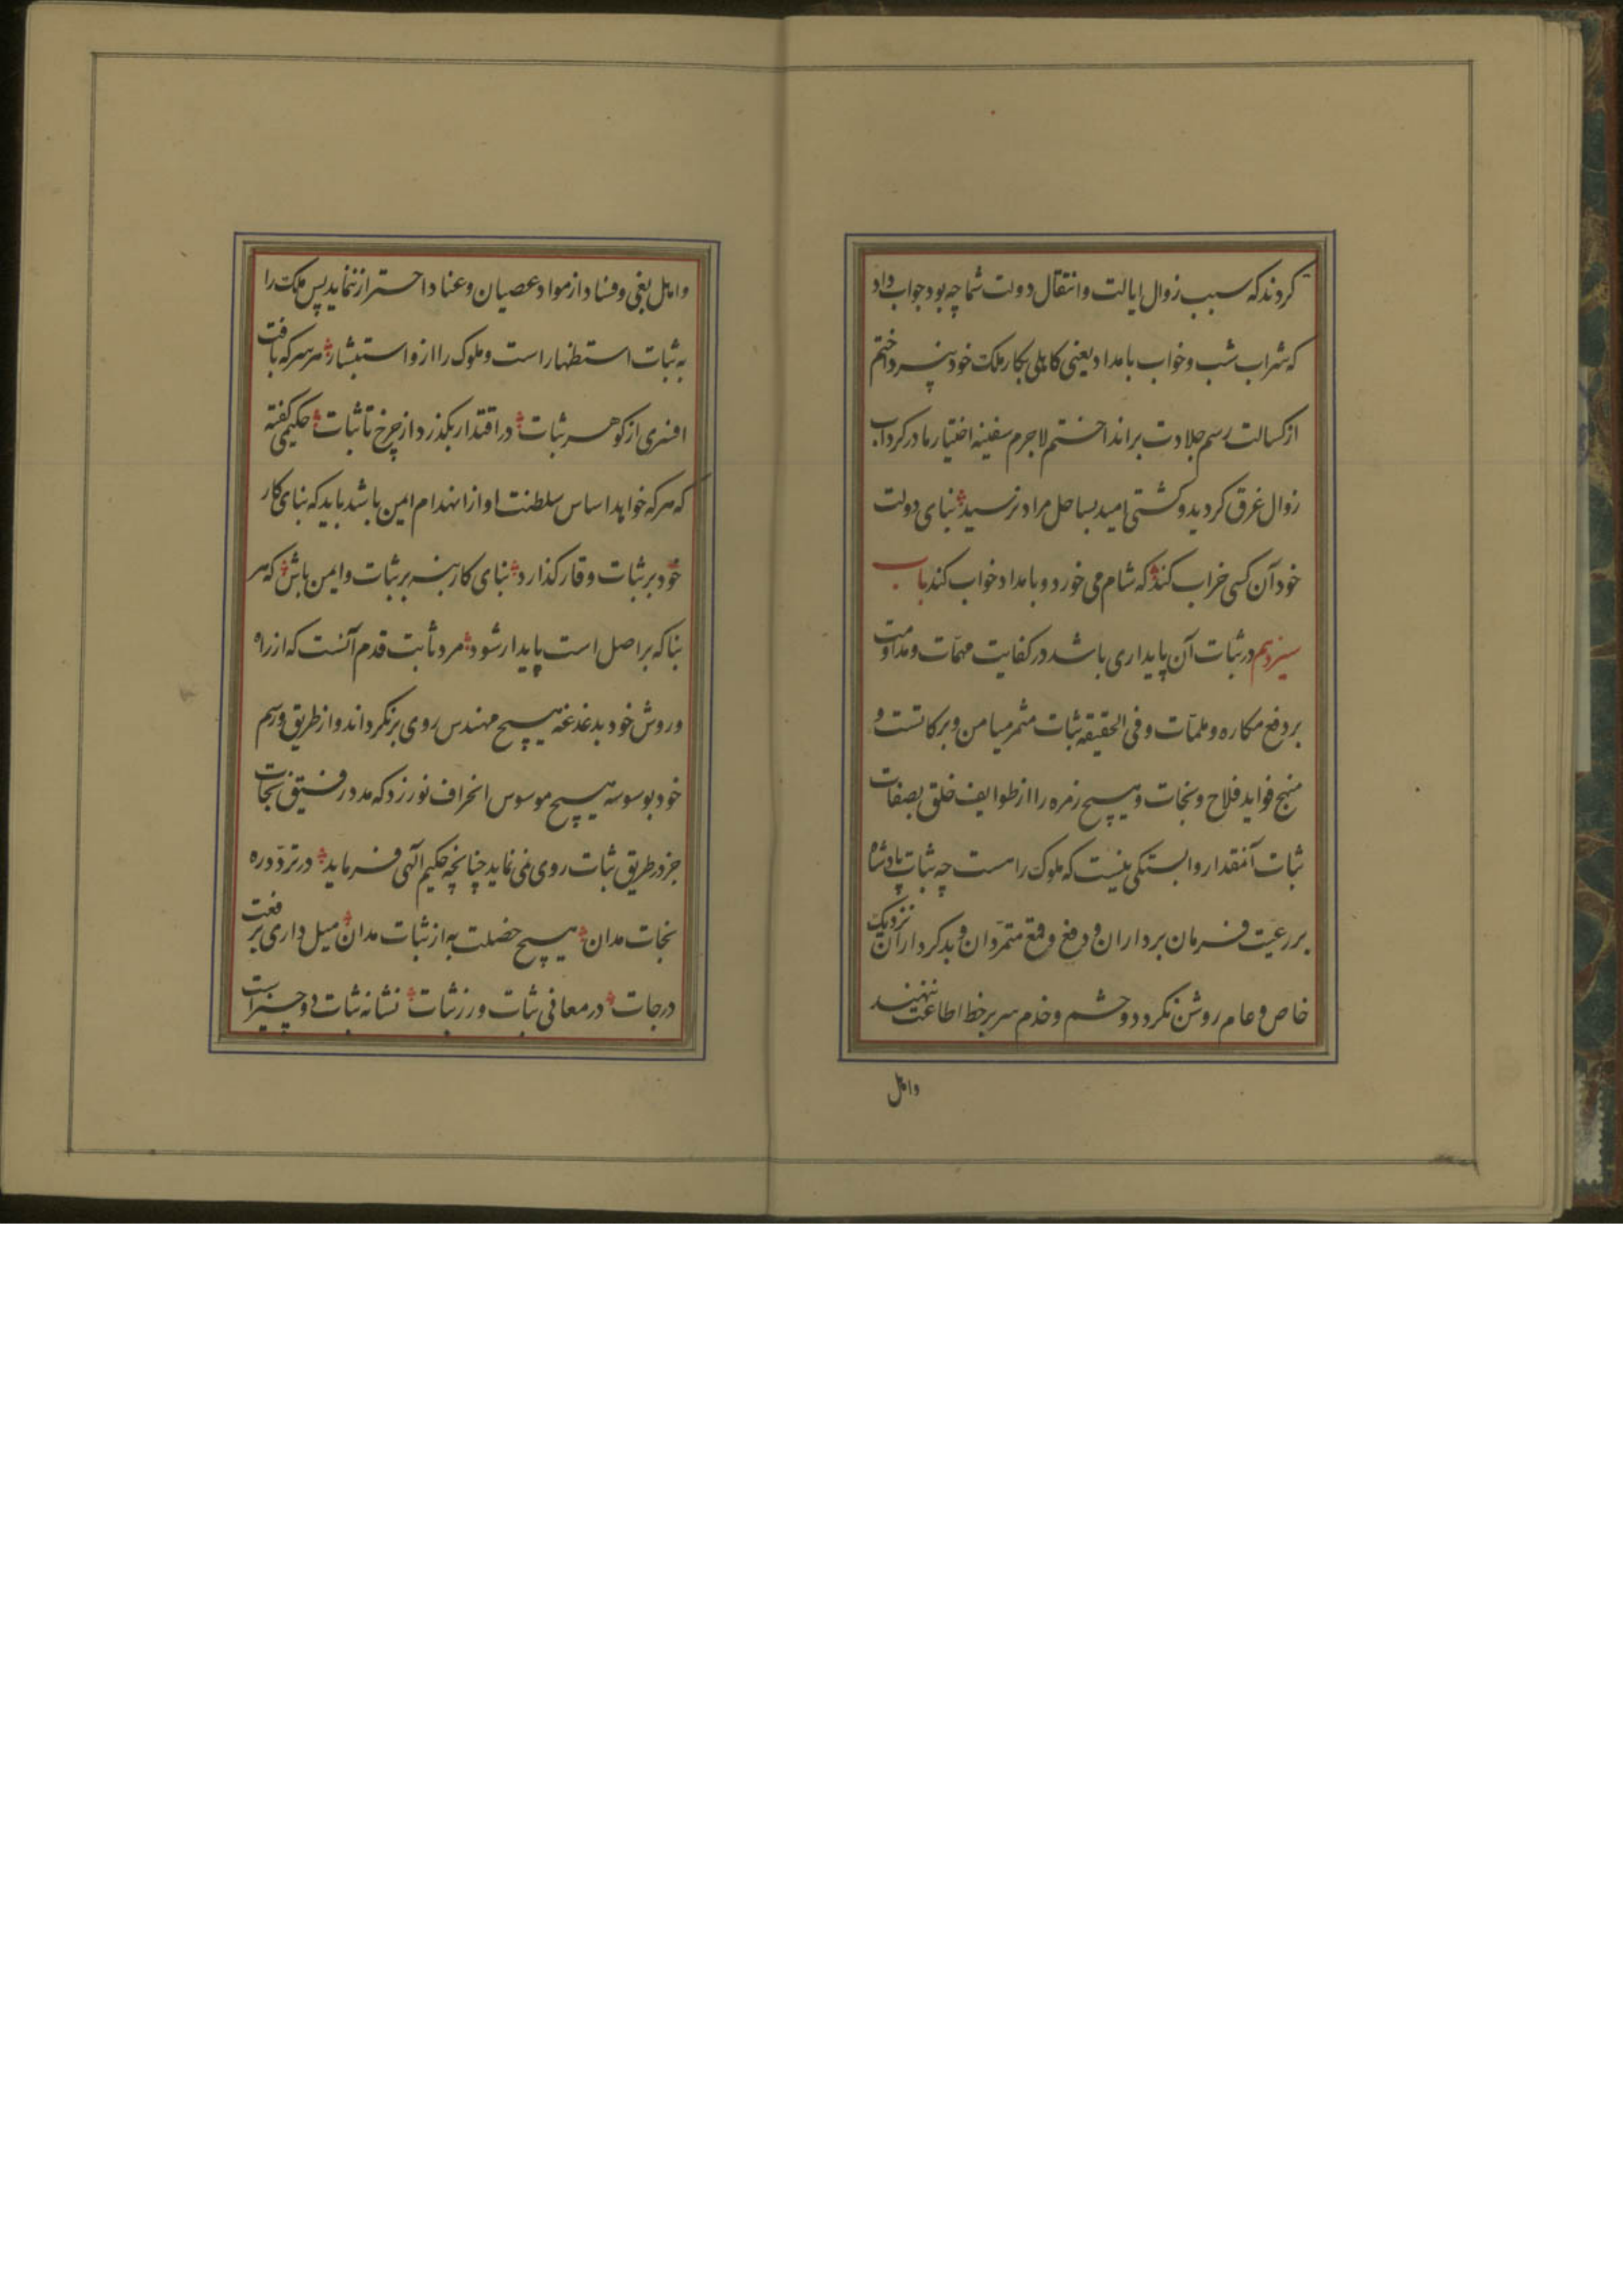 کردند که سبب زوال ایالت و انتقال دولت شما چه بود جواب داد
که شراب شب و خواب بامداد یعنی کاهلی بکار ملک خود نپرداختم
از کسالت رسم جلادت برانداختم لاجرم سفینه اختیار ما در کرداب
زوال غرق کردید و کشتی امید بساحل مراد نرسید بنای دولت
خود آن کسی خراب کند که شام می خورد و بامداد خواب کند باب
سیزدهم در ثبات آن پایداری باشد در کفایت مهمّات و مداومت
بر دفع مکاره و ملمّات و فی الحقیقه ثبات مثمر میامن و برکاتست و
منهج فواید فلاح و نجات و هیچ زمره را از طوایف خلق بصفات
ثبات آنمقدار وابستکی نیست که ملوک راست چه ثبات پادشاه
بر رعیّت فرمان برداران و دفع و قمع متمرّدان و بدکرداران نزدیک
خاص و عام روشن نکردد و حشم و خدم سر بر خط اطاعت ننهند
واهل
واهل بغی و فساد از مواد عصیان و عناد احتراز ننماید پس ملک را
به ثبات استظهار است و ملوک را ازو استبشار هر سر که یافت
افسری از کوهر ثبات در اقتدار بکذرد از چرخ تا ثبات حکیمی کفته
که هر که خواهد اساس سلطنت او از انهدام ایمن باشد باید که بنای کار
خود بر ثبات و قار کذارد بنای کار بنه بر ثبات و ایمن باش که هر
بنا که بر اصل است پایدار شود مرد ثابت قدم آنست که از راه
و روش خود بدغدغه هیچ مهندس روی برنکرداند و از طریق و رسم
خود بوسوسه هیچ موسوس انحراف نورزد که مدد رفیق نجات
جز در طریق ثبات روی نمی نماید چنانچه حکیم الهی فرماید در تردّد ره
نجات مدان هیچ خصلت به از ثبات مدان میل داری بر رفعت
درجات در معانی ثبات ورز ثبات نشانه ثبات دو چیز است